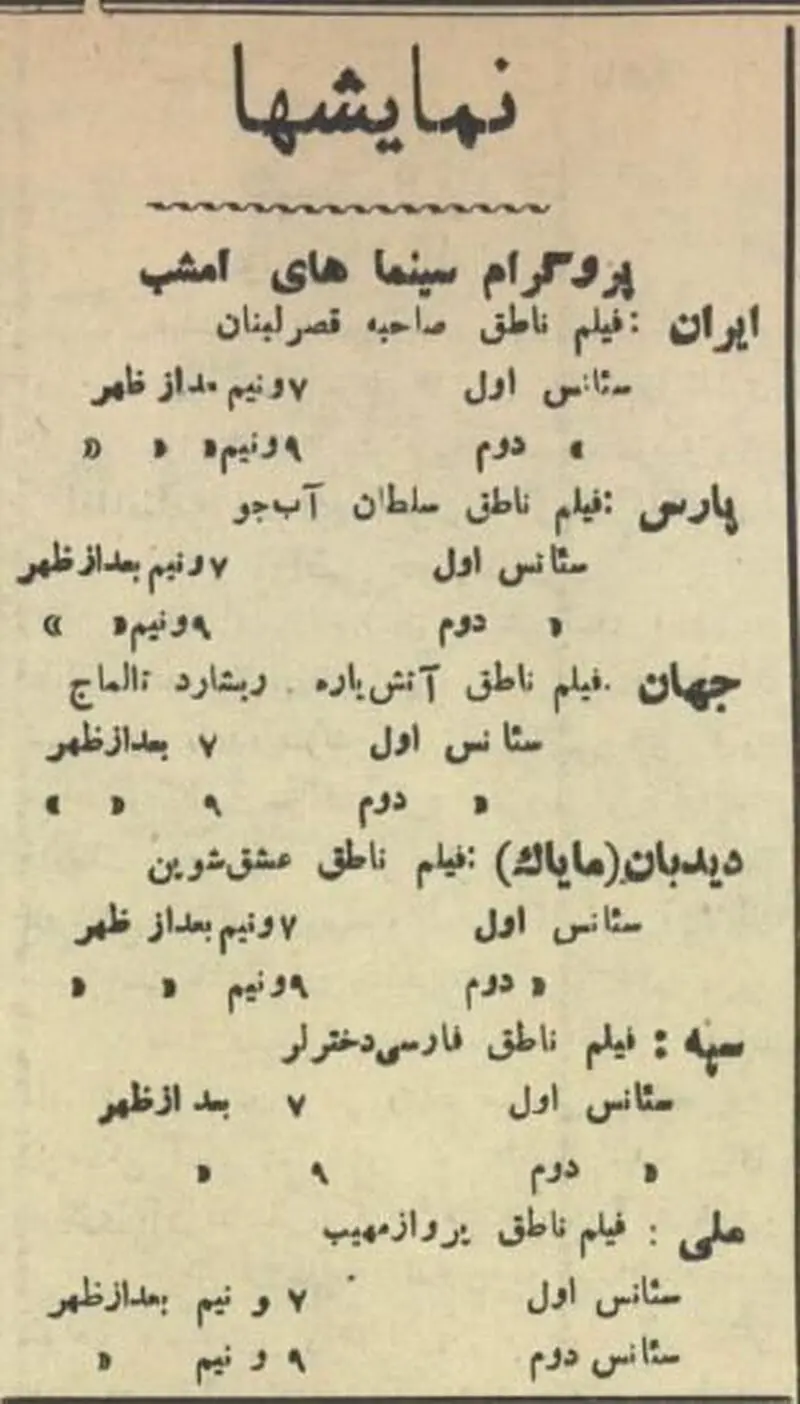 نمایشها
پروگرام سینما های امشب
ایران : فیلم ناطق صاحبه قصر لبنان
سئانس اول ۷ و نیم بعداز ظهر
« دوم ۹ و نیم « « «
پارس : فیلم ناطق سلطان آب جو
سئانس اول ۷ و نیم بعداز ظهر
« دوم ۹ و نیم « «
جهان . فیلم ناطق آتش پاره . ریشارد تالماج
سئانس اول ۷ بعداز ظهر
« دوم ۹ « «
دیدبان (مایاك) : فیلم ناطق عشق شوپن
سئانس اول ۷ و نیم بعداز ظهر
« دوم ۹ و نیم « «
سپه : فیلم ناطق فارسی دختر لر
سئانس اول ۷ بعد از ظهر
« دوم ۹ «
ملی : فیلم ناطق پرواز مهیب
سئانس اول ۷ و نیم بعداز ظهر
سئانس دوم ۹ و نیم «